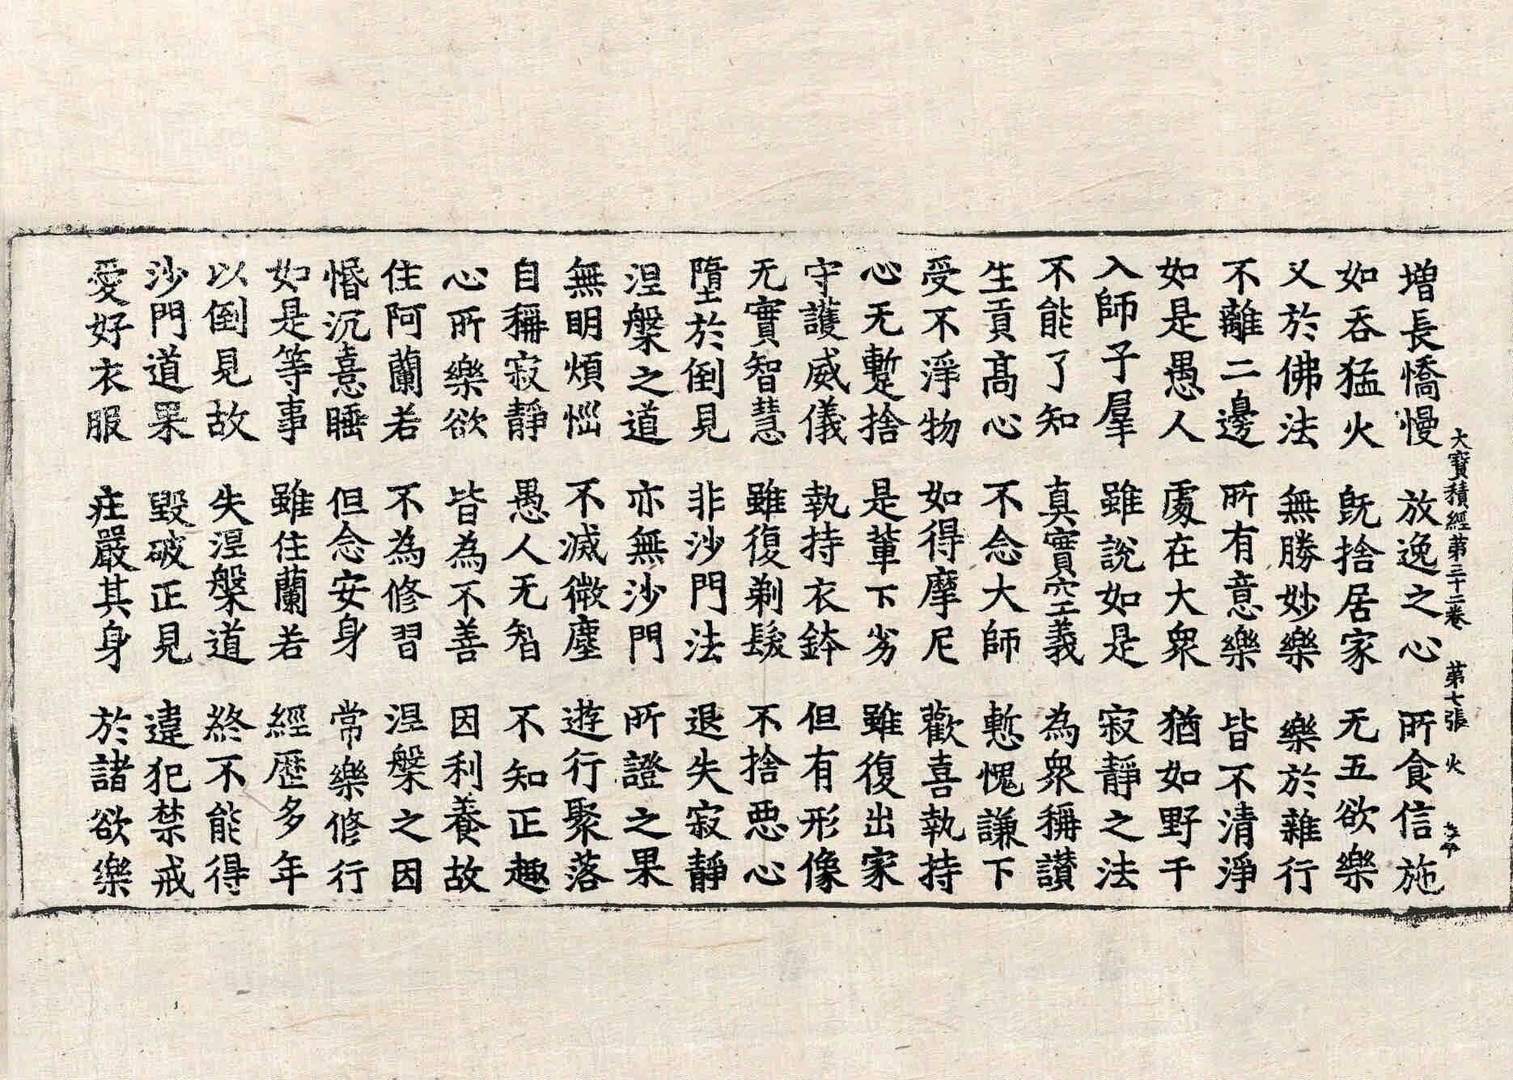 大寶積經第三十二卷 第七張 火
增長憍慢 放逸之心 所食信施
如吞猛火 既捨居家 无五欲樂
又於佛法 無勝妙樂 樂於雜行
不離二邊 所有意樂 皆不清淨
如是愚人 處在大衆 猶如野干
入師子羣 雖說如是 寂靜之法
不能了知 真實空義 為衆稱讃
生貢髙心 不念大師 慙愧謙下
受不淨物 如得摩尼 歡喜執持
心无蹔捨 是輩下劣 雖復出家
守護威儀 執持衣鉢 但有形像
无實智慧 雖復剃髮 不捨悪心
墮於倒見 非沙門法 退失寂靜
涅槃之道 亦無沙門 所證之果
無明煩惱 不滅微塵 遊行聚落
自稱寂靜 愚人无智 不知正趣
心所樂欲 皆為不善 因利養故
住阿蘭若 不為修習 涅槃之因
惛沉憙睡 但念安身 常樂修行
如是等事 雖住蘭若 經歷多年
以倒見故 失涅槃道 終不能得
沙門道果 毀破正見 違犯禁戒
愛好衣服 庄嚴其身 於諸欲樂